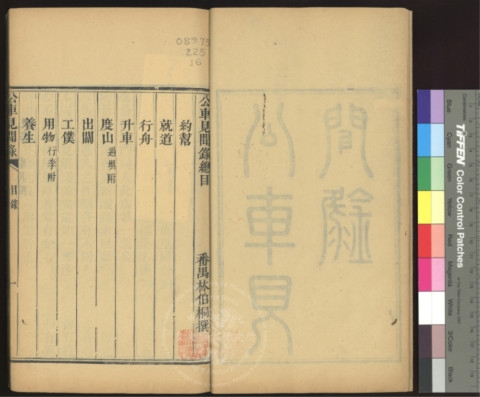 公車見
聞錄
公車見聞錄總目
番禺林伯桐撰
約幫
就道
行舟
升車
度山 過壩附
出關
工僕
用物 行李附
養生
公車見聞錄 目錄 一
0873
225
16
TIFFEN Color Control Patches
Blue
Cyan
Green
Yellow
Red
Magenta
White
3/Color
Black